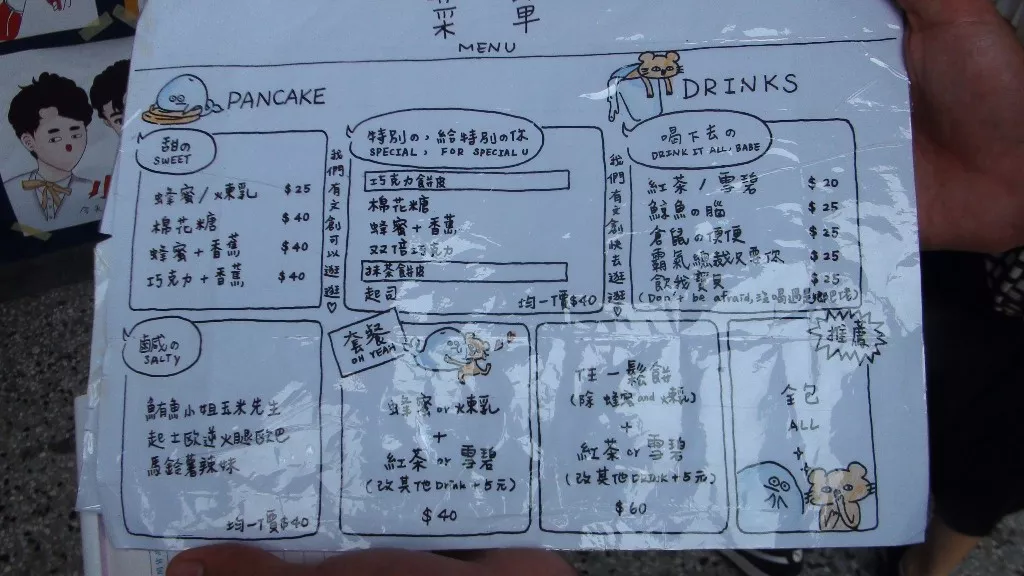 菜單
MENU
PANCAKE
甜の
SWEET
蜂蜜/煉乳 $25
棉花糖 $40
蜂蜜+香蕉 $40
巧克力+香蕉 $40
我們有文創可以逛逛♡
特別の,給特別の你
SPECIAL, FOR SPECIAL U
巧克力餅皮
棉花糖
蜂蜜+香蕉
双倍巧克力
抹茶餅皮
起司
均一價$40
我們有文創快去逛逛♡
DRINKS
喝下去の
DRINK IT ALL, BABE
紅茶/雪碧 $20
鯨魚の腦 $25
倉鼠の便便 $25
霸氣總裁只要你 $25
飲料寶貝 $25
(Don't be afraid,
鹹の
SALTY
鮪魚小姐玉米先生
起士歐逆火腿歐巴
馬鈴薯辣妹
均一價$40
套餐
OH YEAH
蜂蜜or煉乳
+
紅茶or雪碧
(改其他Drink+5元)
$40
任一鬆餅
(除蜂蜜and煉乳)
+
紅茶or雪碧
(改其他Drink+5元)
$60
推薦
全包
ALL
+